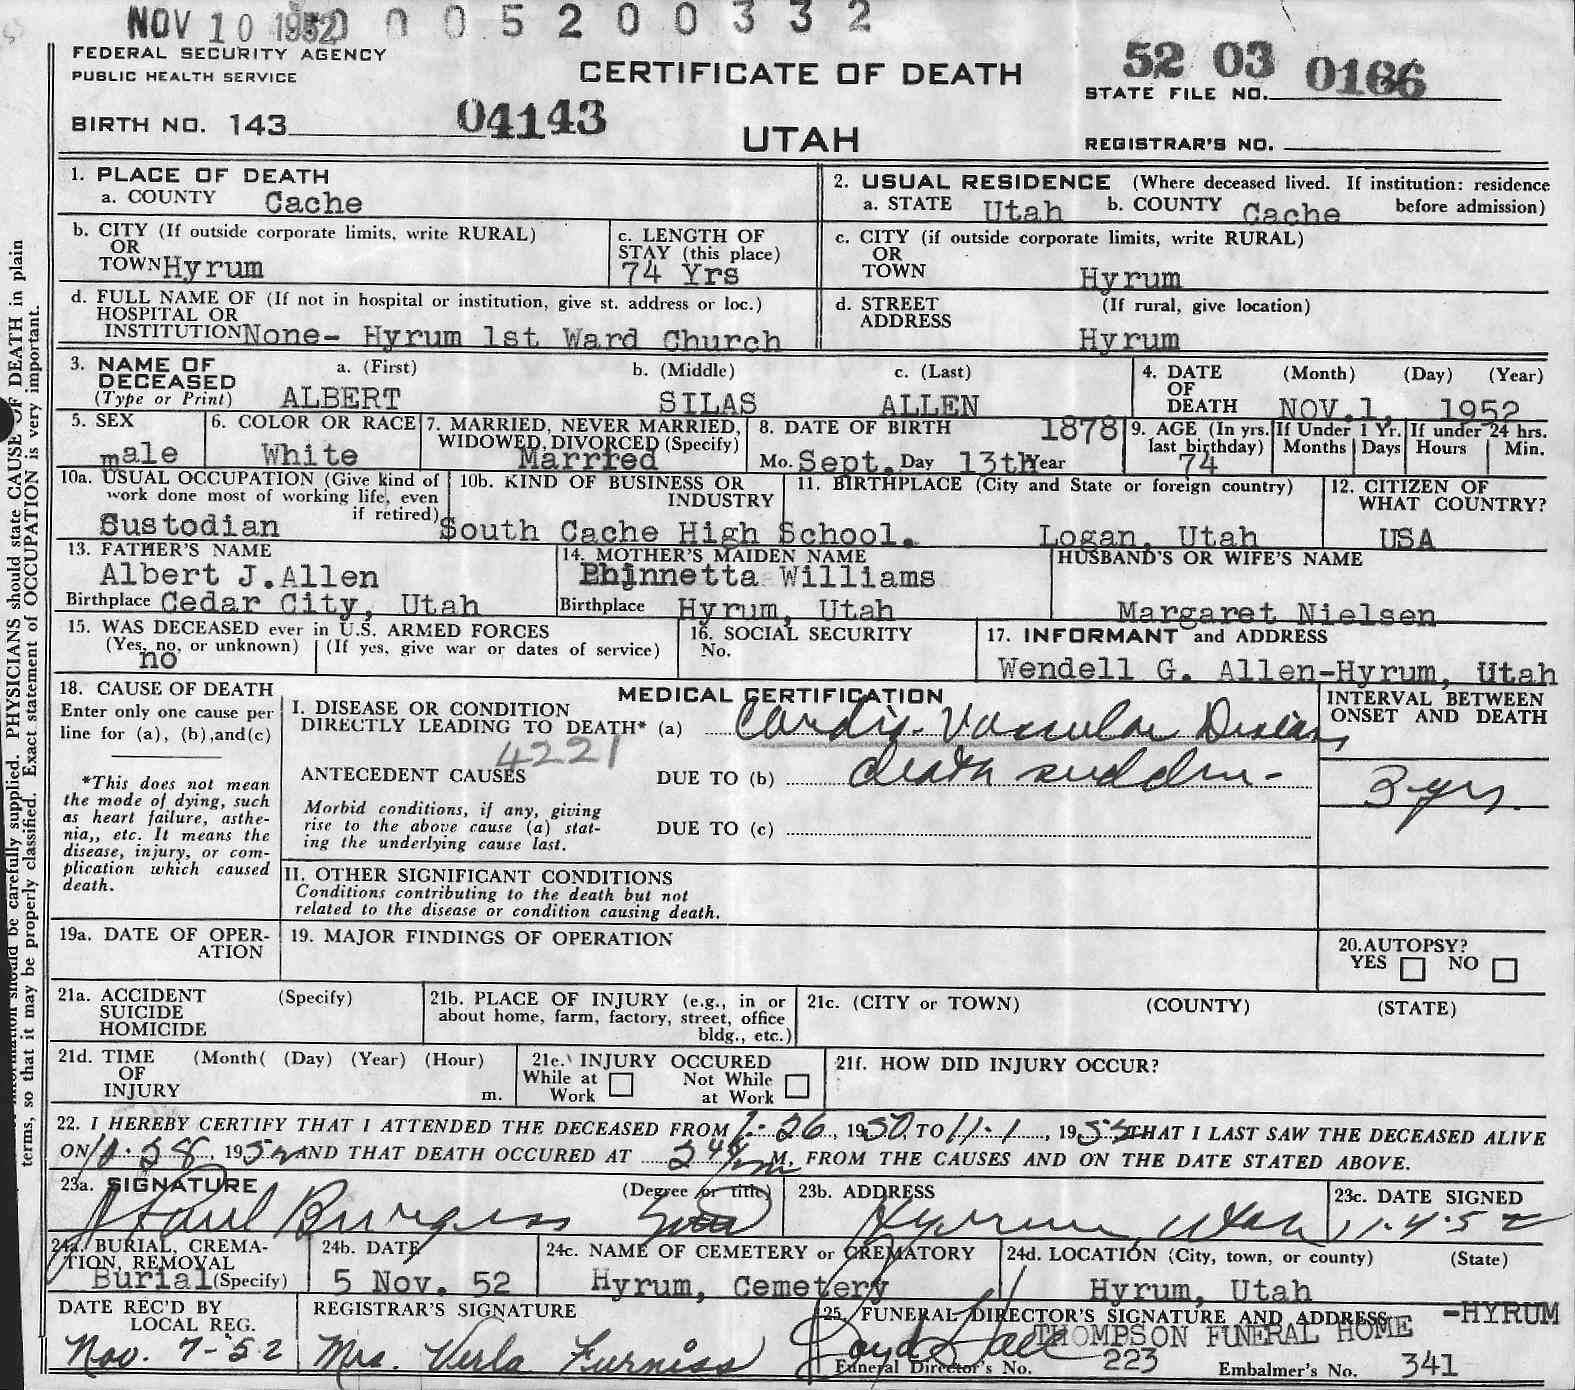 NOV 10 1952 0 0 5 2 0 0 3 3 2
FEDERAL SECURITY AGENCY
PUBLIC HEALTH SERVICE
CERTIFICATE OF DEATH
52 03 0166
STATE FILE NO.
BIRTH NO. 143 04143
UTAH
REGISTRAR'S NO.
1. PLACE OF DEATH
a. COUNTY Cache
2. USUAL RESIDENCE (Where deceased lived. If institution: residence
a. STATE Utah b. COUNTY Cache before admission)
b. CITY (If outside corporate limits, write RURAL)
OR
TOWN Hyrum
c. LENGTH OF
STAY (this place)
74 Yrs
c. CITY (if outside corporate limits, write RURAL)
OR
TOWN Hyrum
d. FULL NAME OF (If not in hospital or institution, give st. address or loc.)
HOSPITAL OR
INSTITUTION None- Hyrum 1st Ward Church
d. STREET (If rural, give location)
ADDRESS
Hyrum
3. NAME OF a. (First) b. (Middle) c. (Last)
DECEASED
(Type or Print) ALBERT SILAS ALLEN
4. DATE (Month) (Day) (Year)
OF
DEATH NOV.1, 1952
5. SEX
male
6. COLOR OR RACE
White
7. MARRIED, NEVER MARRIED,
WIDOWED, DIVORCED (Specify)
Married
8. DATE OF BIRTH 1878
Mo. Sept. Day 13th Year
9. AGE (In yrs. If Under 1 Yr. If under 24 hrs.
last birthday) Months Days Hours Min.
74
10a. USUAL OCCUPATION (Give kind of
work done most of working life, even
if retired)
Sustodian
10b. KIND OF BUSINESS OR
INDUSTRY
South Cache High School.
11. BIRTHPLACE (City and State or foreign country)
Logan, Utah
12. CITIZEN OF
WHAT COUNTRY?
USA
13. FATHER'S NAME
Albert J.Allen
Birthplace Cedar City, Utah
14. MOTHER'S MAIDEN NAME
Phinnetta Williams
Birthplace Hyrum, Utah
HUSBAND'S OR WIFE'S NAME
Margaret Nielsen
15. WAS DECEASED ever in U.S. ARMED FORCES
(Yes, no, or unknown) (If yes, give war or dates of service)
no
16. SOCIAL SECURITY
No.
17. INFORMANT and ADDRESS
Wendell G. Allen-Hyrum, Utah
18. CAUSE OF DEATH
Enter only one cause per
line for (a), (b),and(c)
*This does not mean
the mode of dying, such
as heart failure, asthe-
nia,, etc. It means the
disease, injury, or com-
plication which caused
death.
MEDICAL CERTIFICATION
I. DISEASE OR CONDITION
DIRECTLY LEADING TO DEATH* (a) Cardio-Vascular Disease
4221
ANTECEDENT CAUSES DUE TO (b) death sudden-
Morbid conditions, if any, giving
rise to the above cause (a) stat-
ing the underlying cause last.
DUE TO (c)
INTERVAL BETWEEN
ONSET AND DEATH
3 yrs.
II. OTHER SIGNIFICANT CONDITIONS
Conditions contributing to the death but not
related to the disease or condition causing death.
19a. DATE OF OPER-
ATION
19. MAJOR FINDINGS OF OPERATION
20.AUTOPSY?
YES NO
21a. ACCIDENT (Specify)
SUICIDE
HOMICIDE
21b. PLACE OF INJURY (e.g., in or
about home, farm, factory, street, office
bldg., etc.)
21c. (CITY or TOWN) (COUNTY) (STATE)
21d. TIME (Month( (Day) (Year) (Hour)
OF
INJURY m.
21e. INJURY OCCURED
While at Not While
Work at Work
21f. HOW DID INJURY OCCUR?
22. I HEREBY CERTIFY THAT I ATTENDED THE DECEASED FROM 26, 1950, TO 11-1, 195 THAT I LAST SAW THE DECEASED ALIVE
ON 10-28, 1952 AND THAT DEATH OCCURED AT M. FROM THE CAUSES AND ON THE DATE STATED ABOVE.
23a. SIGNATURE (Degree or title)
Paul Burgess
23b. ADDRESS
Hyrum, Utah
23c. DATE SIGNED
11-4-52
24a. BURIAL, CREMA-
TION, REMOVAL
Burial (Specify)
24b. DATE
5 Nov. 52
24c. NAME OF CEMETERY or CREMATORY
Hyrum, Cemetery
24d. LOCATION (City, town, or county) (State)
Hyrum, Utah
DATE REC'D BY
LOCAL REG.
Nov. 7-52
REGISTRAR'S SIGNATURE
Mrs. Verla Furniss
25. FUNERAL DIRECTOR'S SIGNATURE AND ADDRESS -HYRUM
Loyd Hall THOMPSON FUNERAL HOME
Funeral Director's No. 223 Embalmer's No. 341
information should be carefully supplied. PHYSICIANS should state CAUSE OF DEATH in plain
terms, so that it may be properly classified. Exact statement of OCCUPATION is very important.